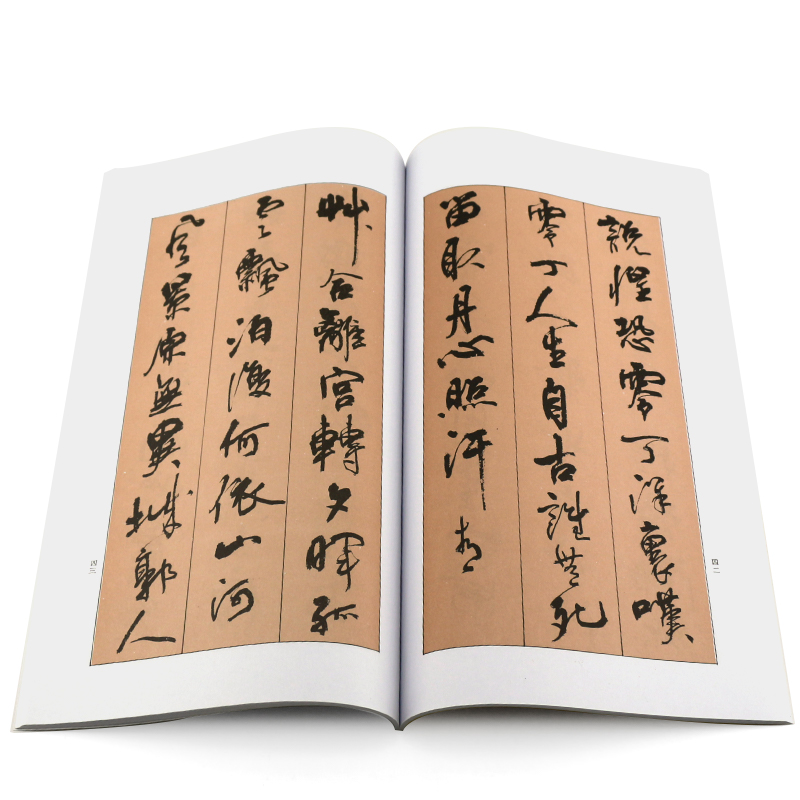 說惶恐零丁洋裏嘆
零丁人生自古誰無死
留取丹心照汗青
四二
艸合離宮轉夕暉孤
雲飄泊復何依山河
風景原無異城郭人
四三